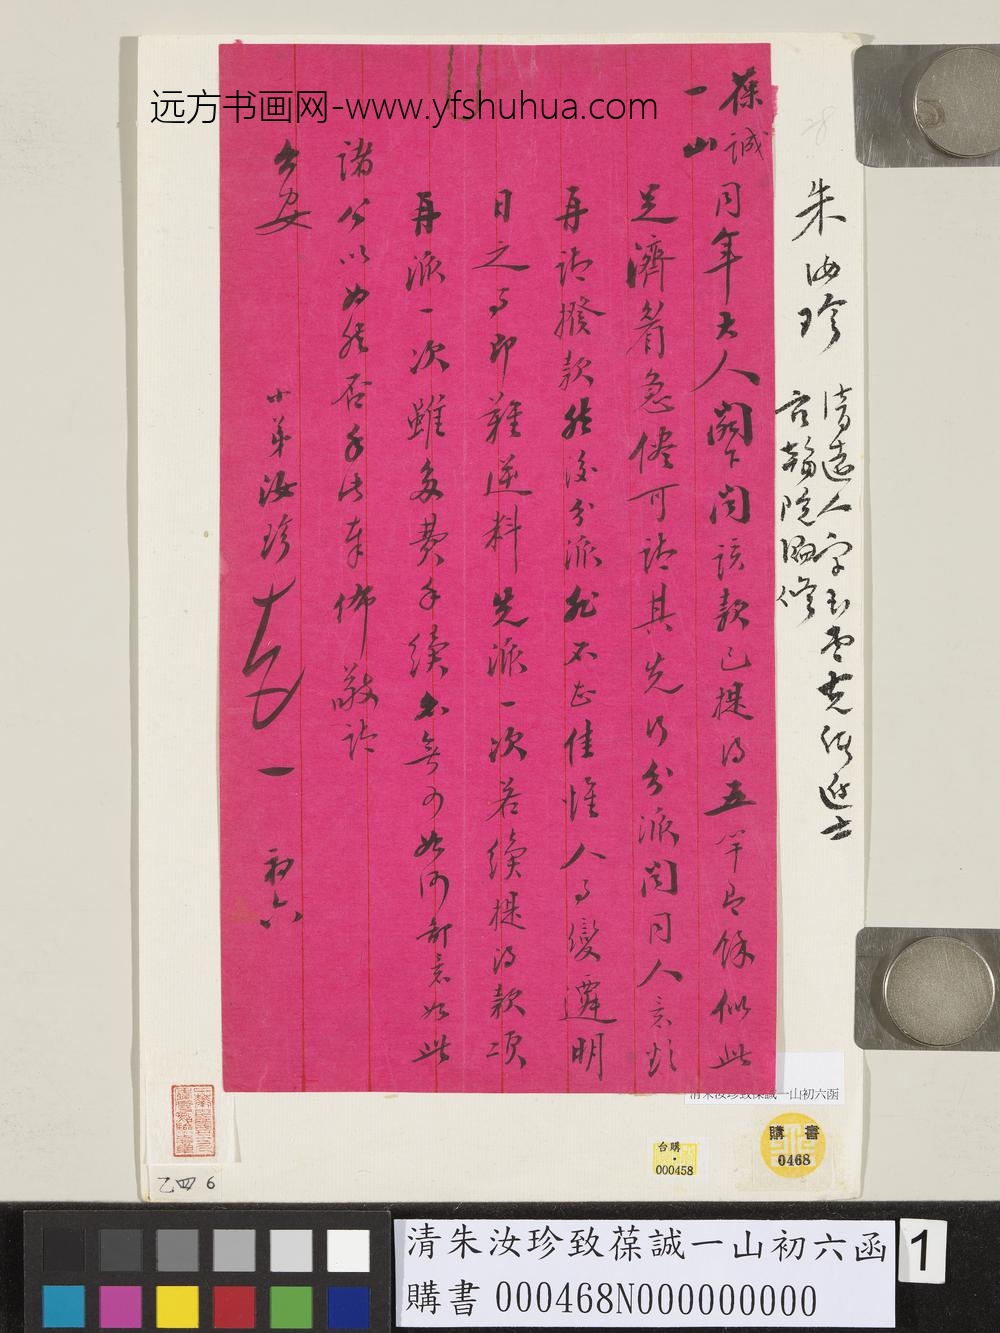 远方书画网-www.yfshuhua.com
葆誠
一山
同年大人閣下閱該款已提得五竿有餘似此
足濟眉急儘可請其先行分派閱同人意欲
再請撥款然後分派非不甚佳惟人事變遷明
日之事即難逆料先派一次若續提得款項
再派一次雖多費手續亦無可如何鄙意如此
諸公以為然否手此奉佈敬請
公安
小弟汝珍 初六
朱汝珍
清遠人字玉堂光緒進士
官翰院編修
清朱汝珍致葆誠一山初六函
購書
0468
台購
000458
乙四 6
清朱汝珍致葆誠一山初六函
購書 000468N000000000
1